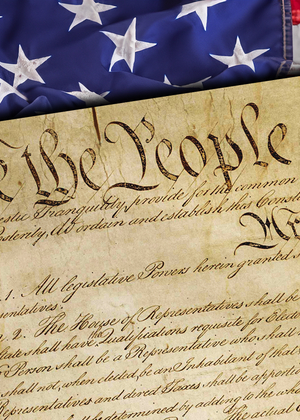 e the People
estic Tranquility, provide for the common
osterity, do ordain and establish this Const
Ar
1. All legislative Powers herein granted s
entatives.
2. The House of Representatives shall be
tate shall have the Qualifications requisite for Elect
Person shall be a Representative who shall
shall not, when elected, be an Inhabitant of that
Representatives and direct Taxes shall be apporti
shall be determined by adding to the who
The actual